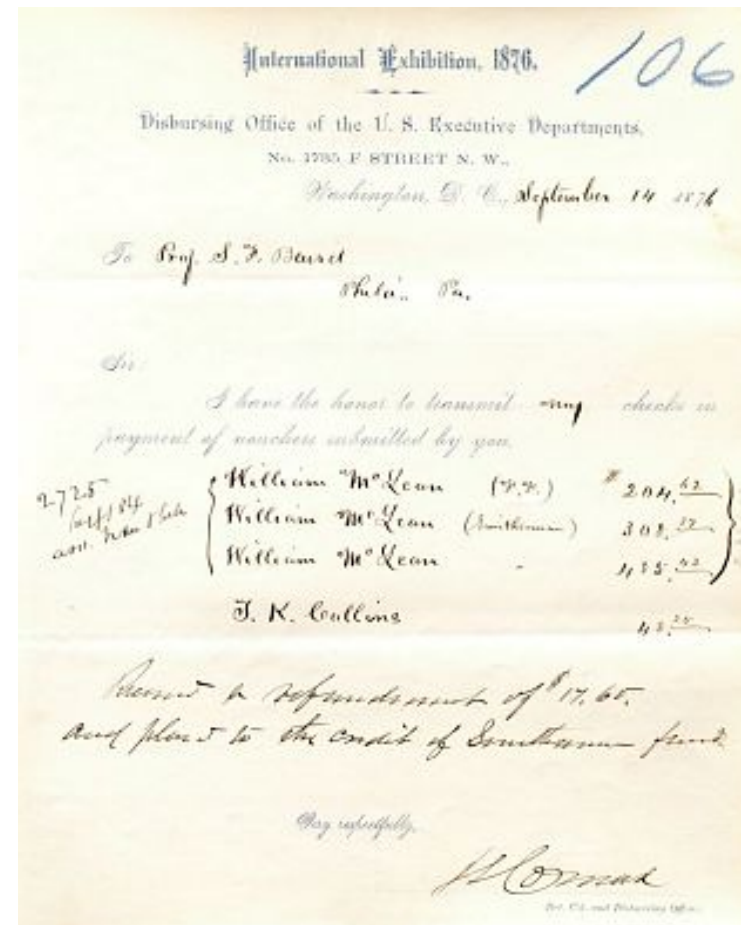 International Exhibition, 1876.
106
Disbursing Office of the U. S. Executive Departments,
No. 1735 F STREET N. W.,
Washington, D. C., September 14 1876
To Prof. S. F. Baird
Phila., Pa.
Sir:
I have the honor to transmit my checks in
payment of vouchers submitted by you.
2725
William McLean (F.F.) $204.62
William McLean (Smithsonian) 308.
William McLean " 485.42
T. K. Collins 48.25
a refundment of $17.65.
and place to the credit of Smithsonian fund.
Very respectfully,
and Disbursing Officer.